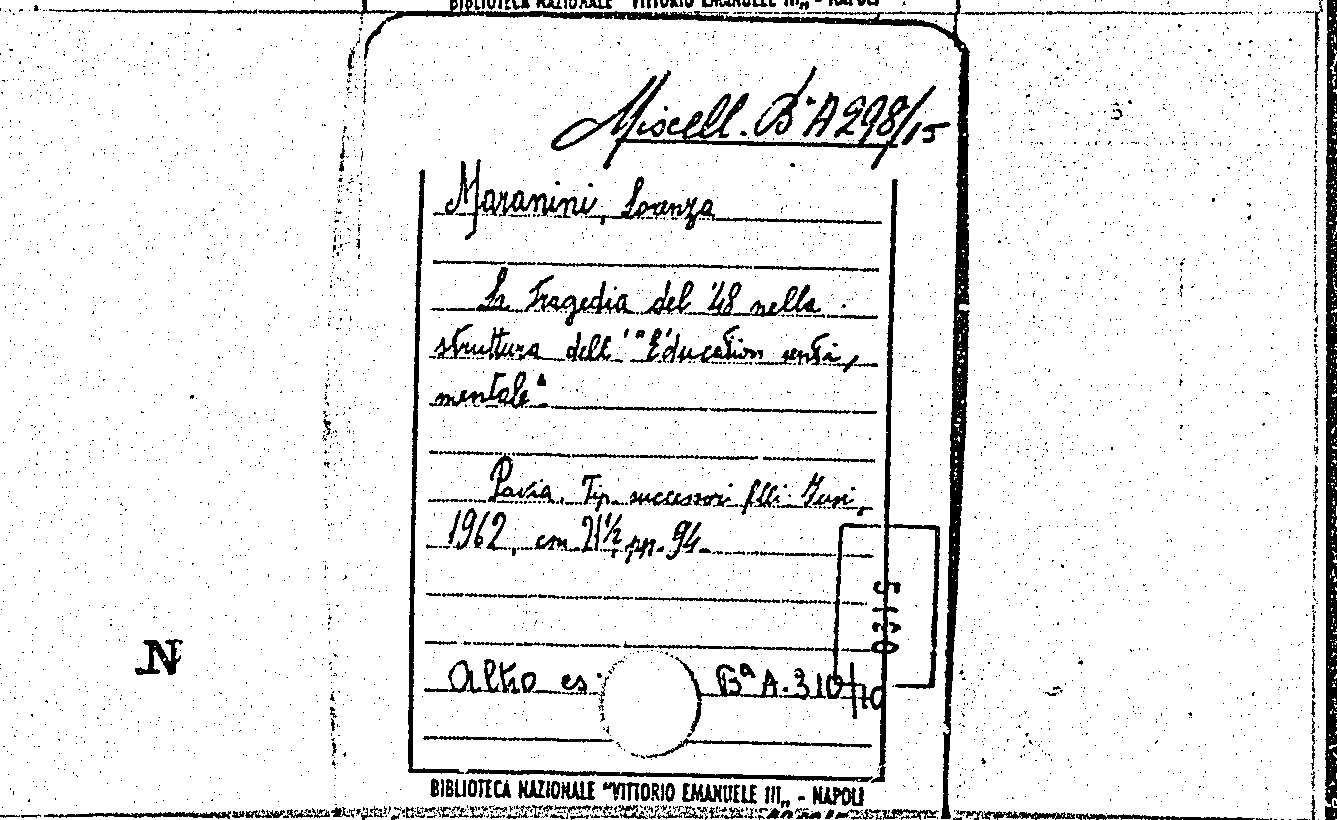 BIBLIOTECA NAZIONALE "VITTORIO EMANUELE III„ - NAPOLI
Miscell. Bª A 298/15
Maranini, Lorenza
La Tragedia del '48 nella
struttura dell'"Éducation senti,
mentale".
Pavia. Tip. successori f.lli Fusi,
1962, cm 21½, pp. 94.
Altro es. Bª A. 310/10
N
BIBLIOTECA NAZIONALE "VITTORIO EMANUELE III„ - NAPOLI